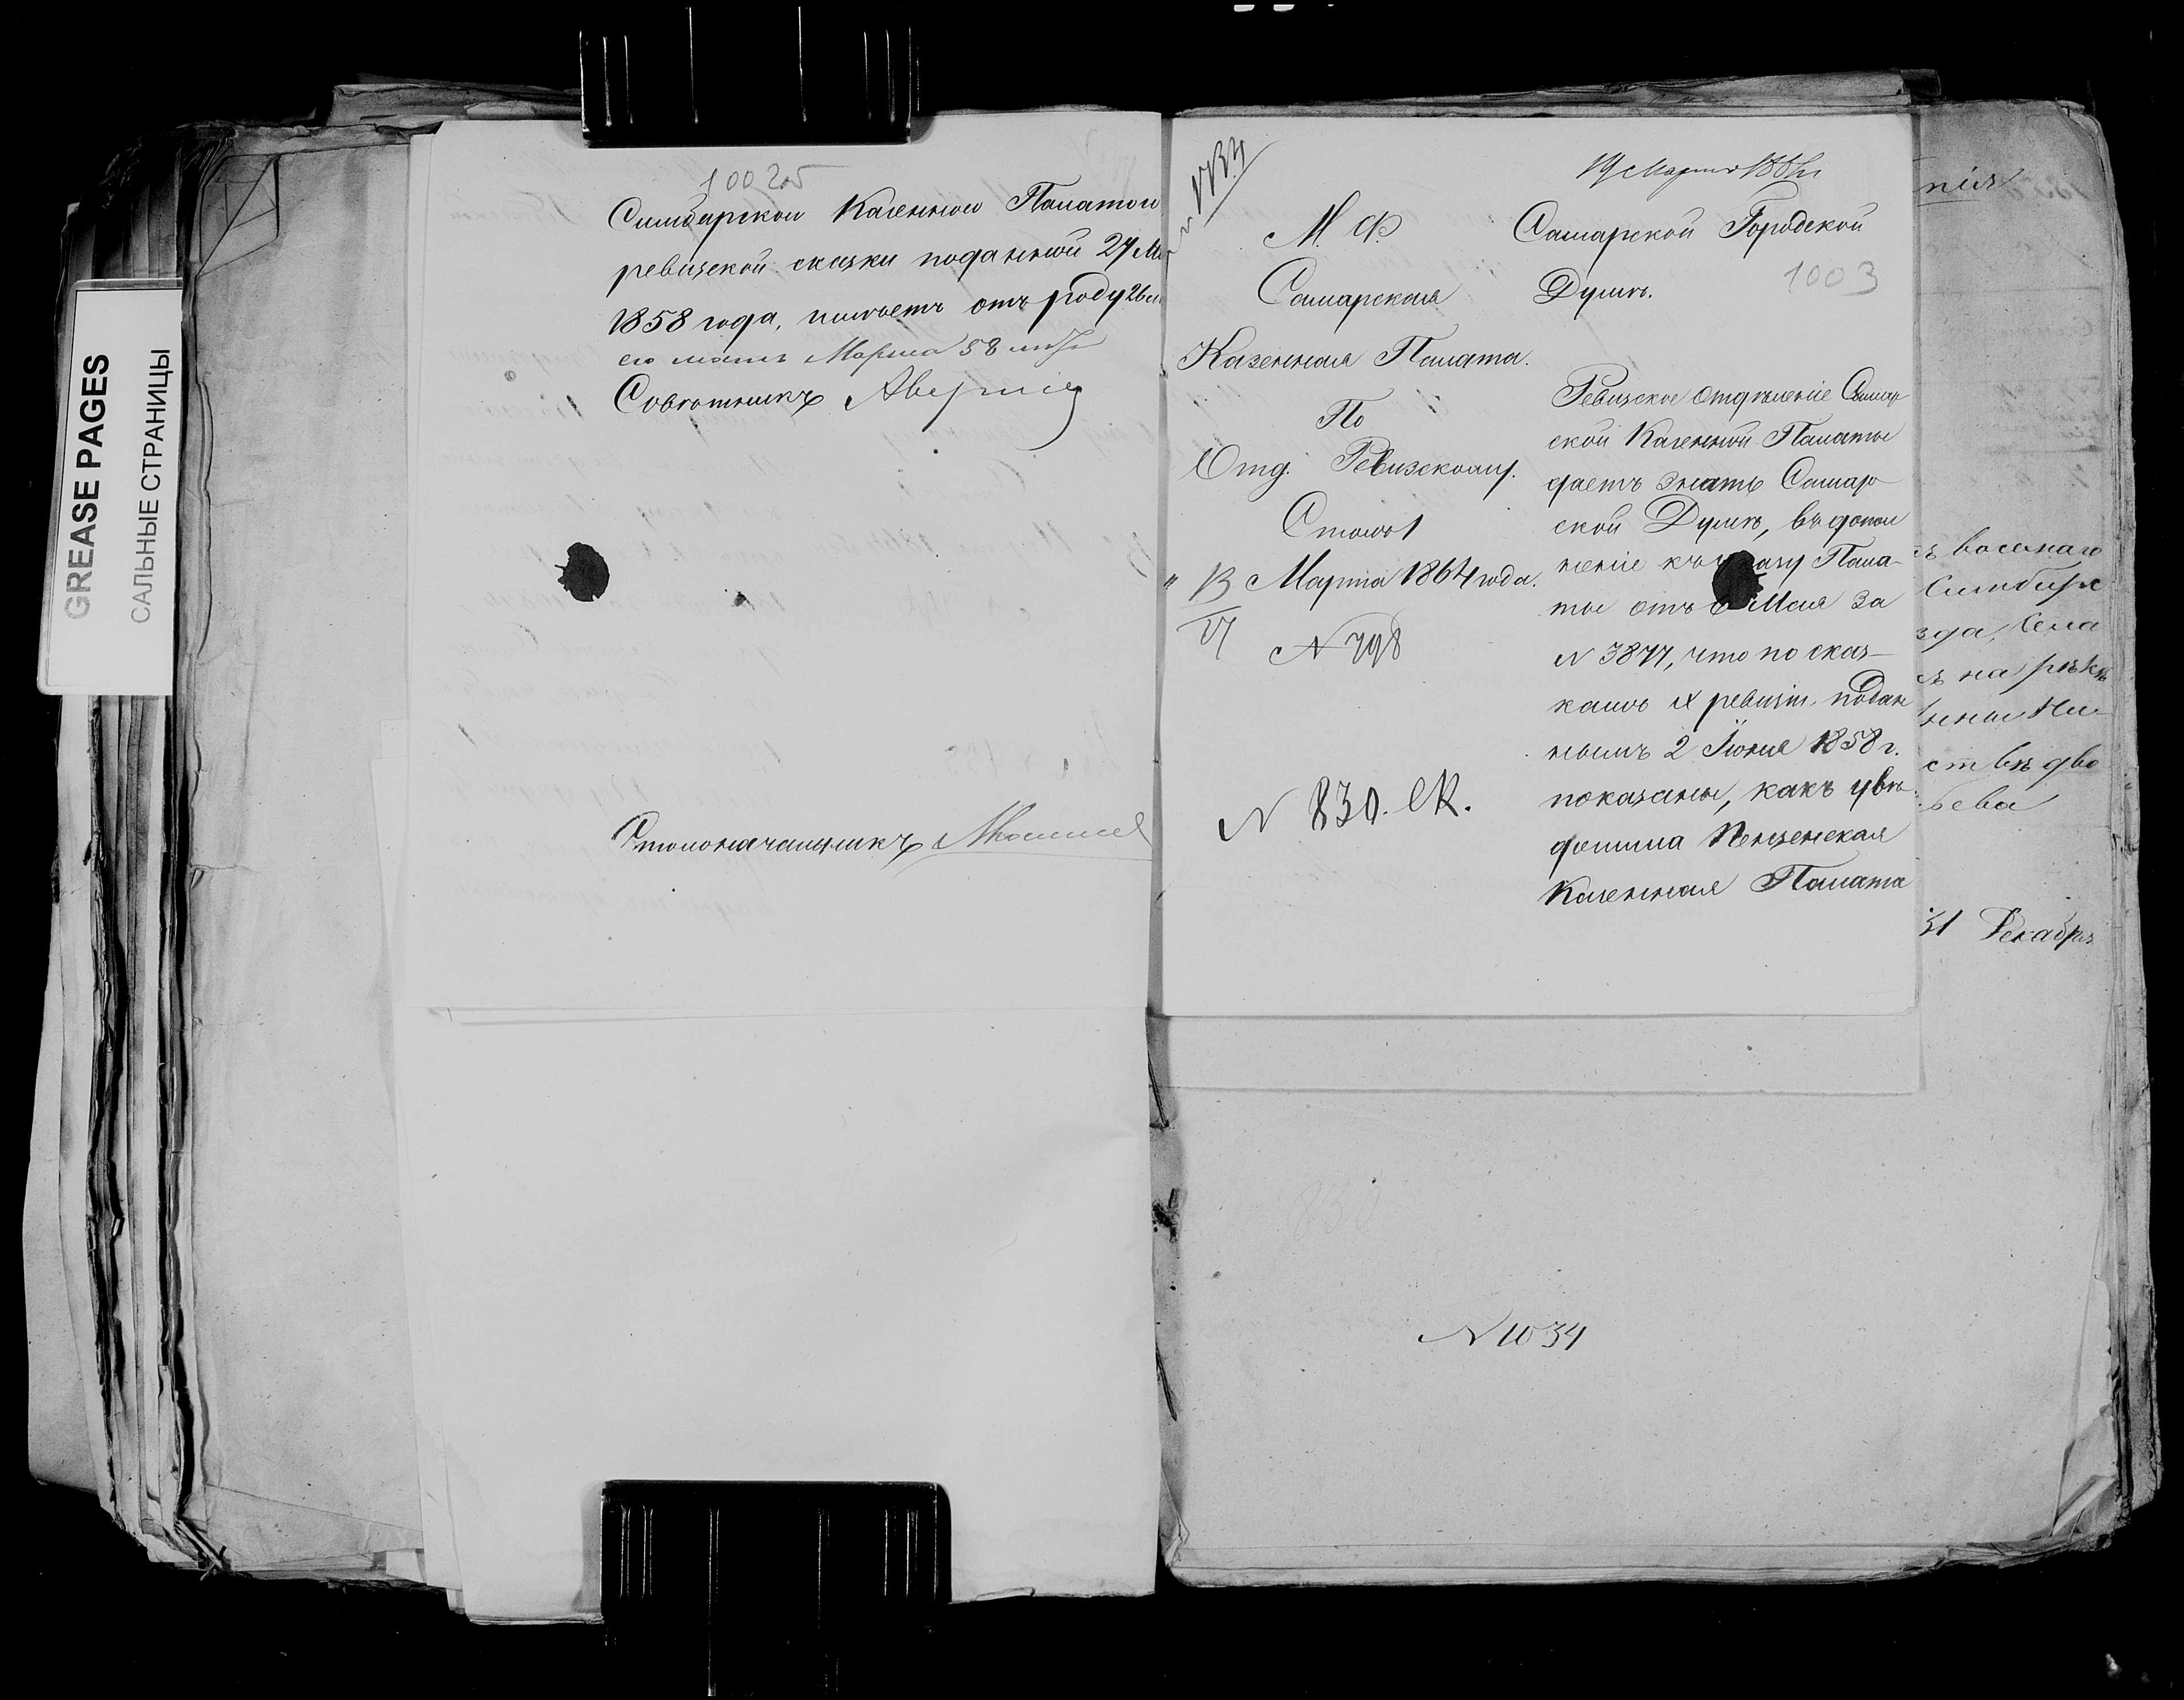 GREASE PAGES
САЛЬНЫЕ СТРАНИЦЫ
Симбирской Казенной Палатою
ревизской сказки поданной 27
1858 года, имѣетъ отъ роду 26
его мать Марина 58
Совѣтникъ
Столоначальникъ
М. Ф.
Самарская
Казенная Палата.
По
Отд. Ревизскому.
Столъ 1
" 13 Марта 1864 года.
17
N 798
N 830.
19 Марта
Самарской Городской
Думѣ.
1003
Ревизское Отдѣленіе Самар
ской Казенной Палаты
даетъ знать Самар
ской Думѣ, въ допол
неніе къ Пала-
ты отъ 6 Мая за
N 3877, что по сказ-
камъ X ревизіи, подан
нымъ 2 Іюня 1858 г.
показаны, какъ увѣ
домила Пензенская
Казенная Палата
ніи
восьмаго
Симбирс
зда, Села
на рѣкѣ
ств въ дво
бева
31 Декабря
830
N 1034